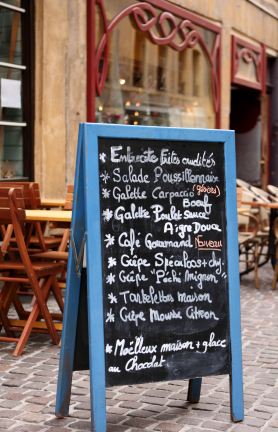 * Entrecôte Frites crudités
* Salade Poussillonnaire
* Galette Carpaccio
Boeuf
* Galette Poulet Sauce
Aigre Douce
* Café Gourmand
* Crêpe Spéculoos +
* Crêpe "Péché Mignon"
* Tartelettes maison
* Crêpe Mousse Citron
* Moëlleux maison + glace
au Chocolat